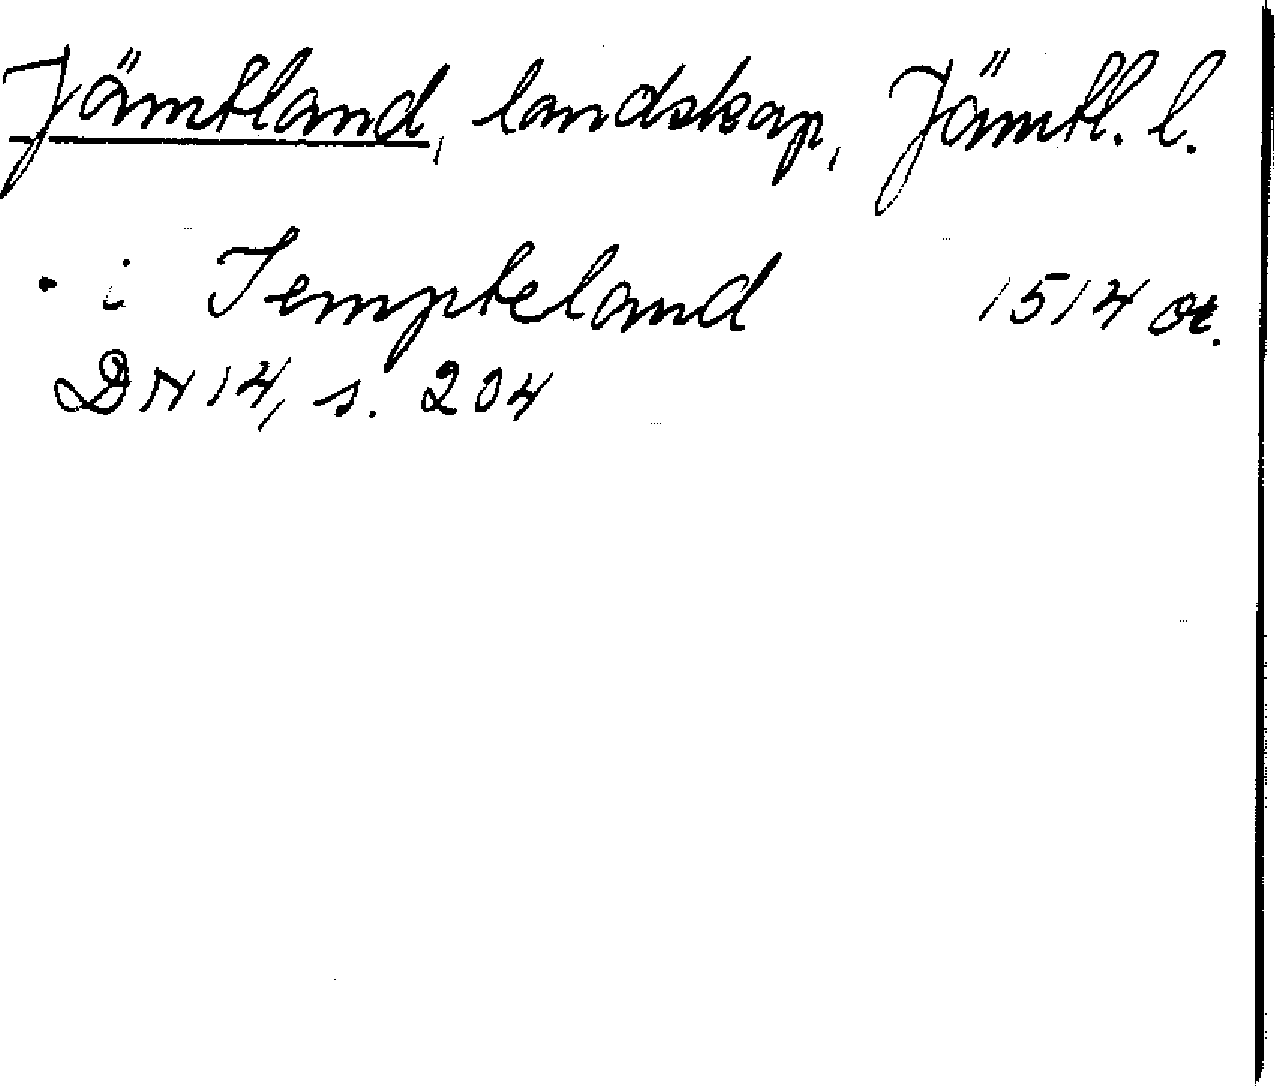 Jämtland, landskap, Jämtl. l.
. i Iempteland 1514 or.
DN 14, s. 204